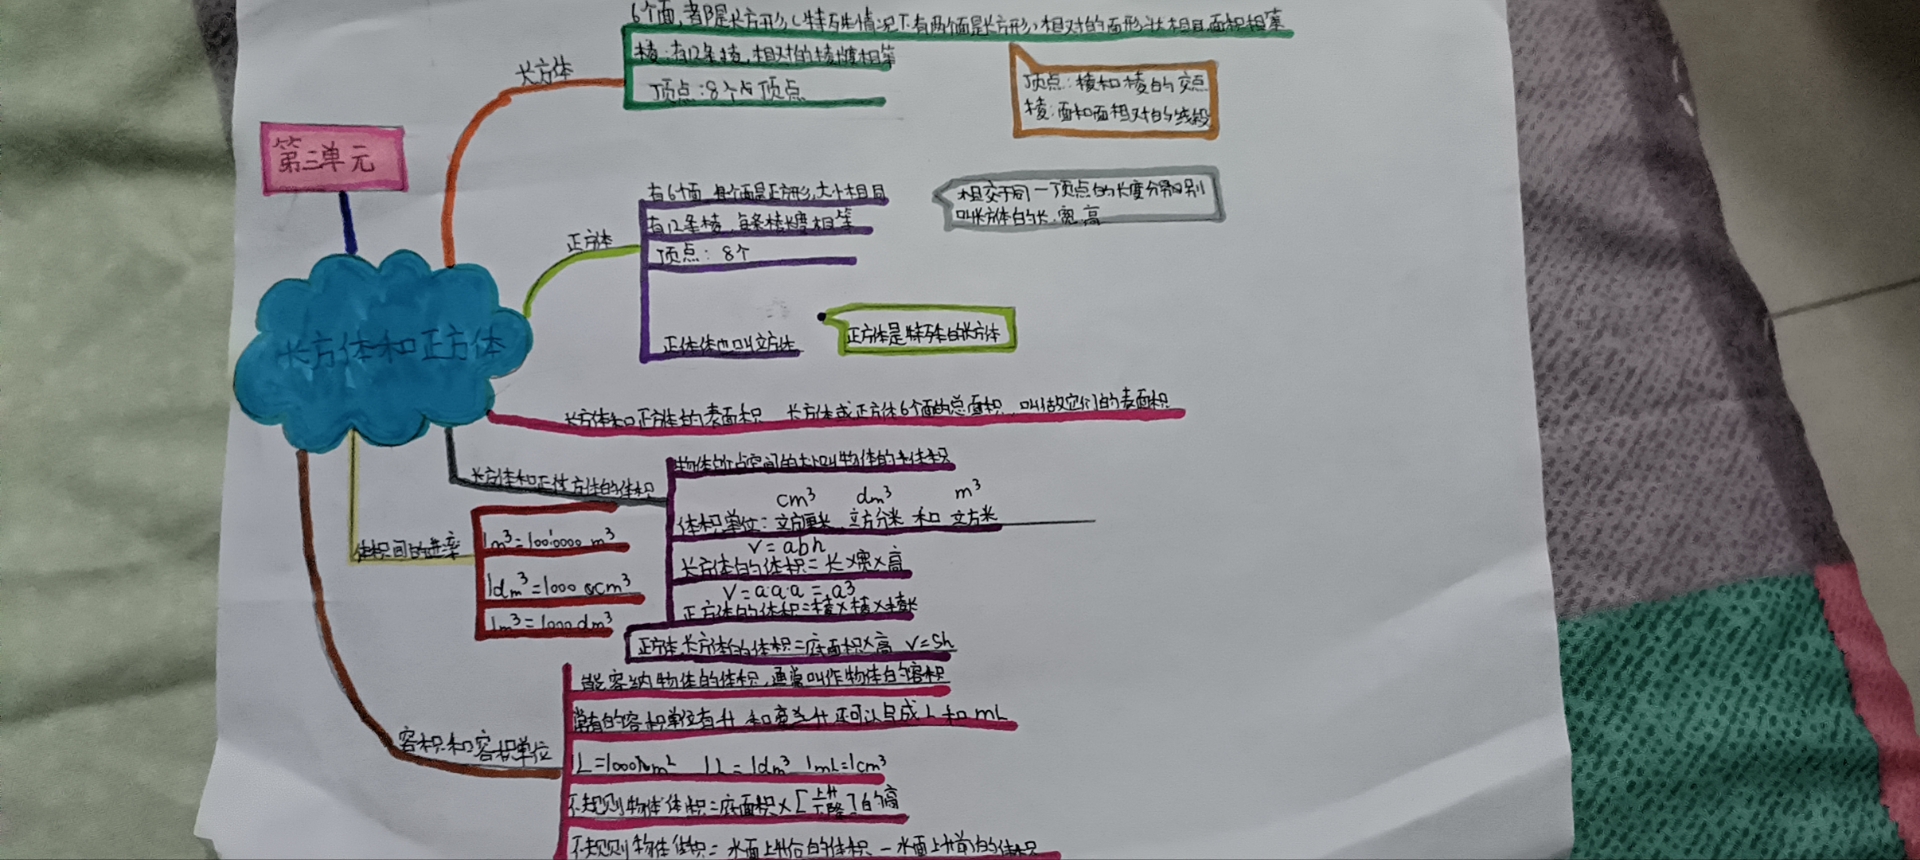 第三单元
长方体和正方体
长方体
6个面，都是长方形（特殊情况下有两个面是长方形）相对的面形状相同面积相等
棱：有12条棱，相对的棱长度相等
顶点：8个顶点
顶点：棱和棱的交点
棱：面和面相对的线段
正方体
有6个面，每个面是正方形，大小相同
有12条棱，每条棱长度相等
顶点：8个
正体体也叫立方体
相交于同一顶点的长度分别
叫长方体的长、宽、高
正方体是特殊的长方体
长方体和正方体的表面积 长方体或正方体6个面的总面积，叫做它们的表面积
长方体和正方体的体积
物体所占空间的大小叫物体的体积
cm³ dm³ m³
体积单位：立方厘米 立方分米 和 立方米
V=abh
长方体的体积=长×宽×高
V=a·a·a=a³
正方体的体积=棱×棱×棱长
正方体长方体的体积=底面积×高 V=Sh
体积间的进率
1m³=1000000 m³
1dm³=1000 cm³
1m³=1000dm³
容积和容积单位
能容纳物体的体积，通常叫作物体的容积
常有的容积单位有升 和毫升 还可以写成L和mL
1L=1000 1L=1dm³ 1mL=1cm³
不规则物体体积=底面积×[上升 下降]的高
不规则物体体积=水面上升后的体积-水面上升前的体积